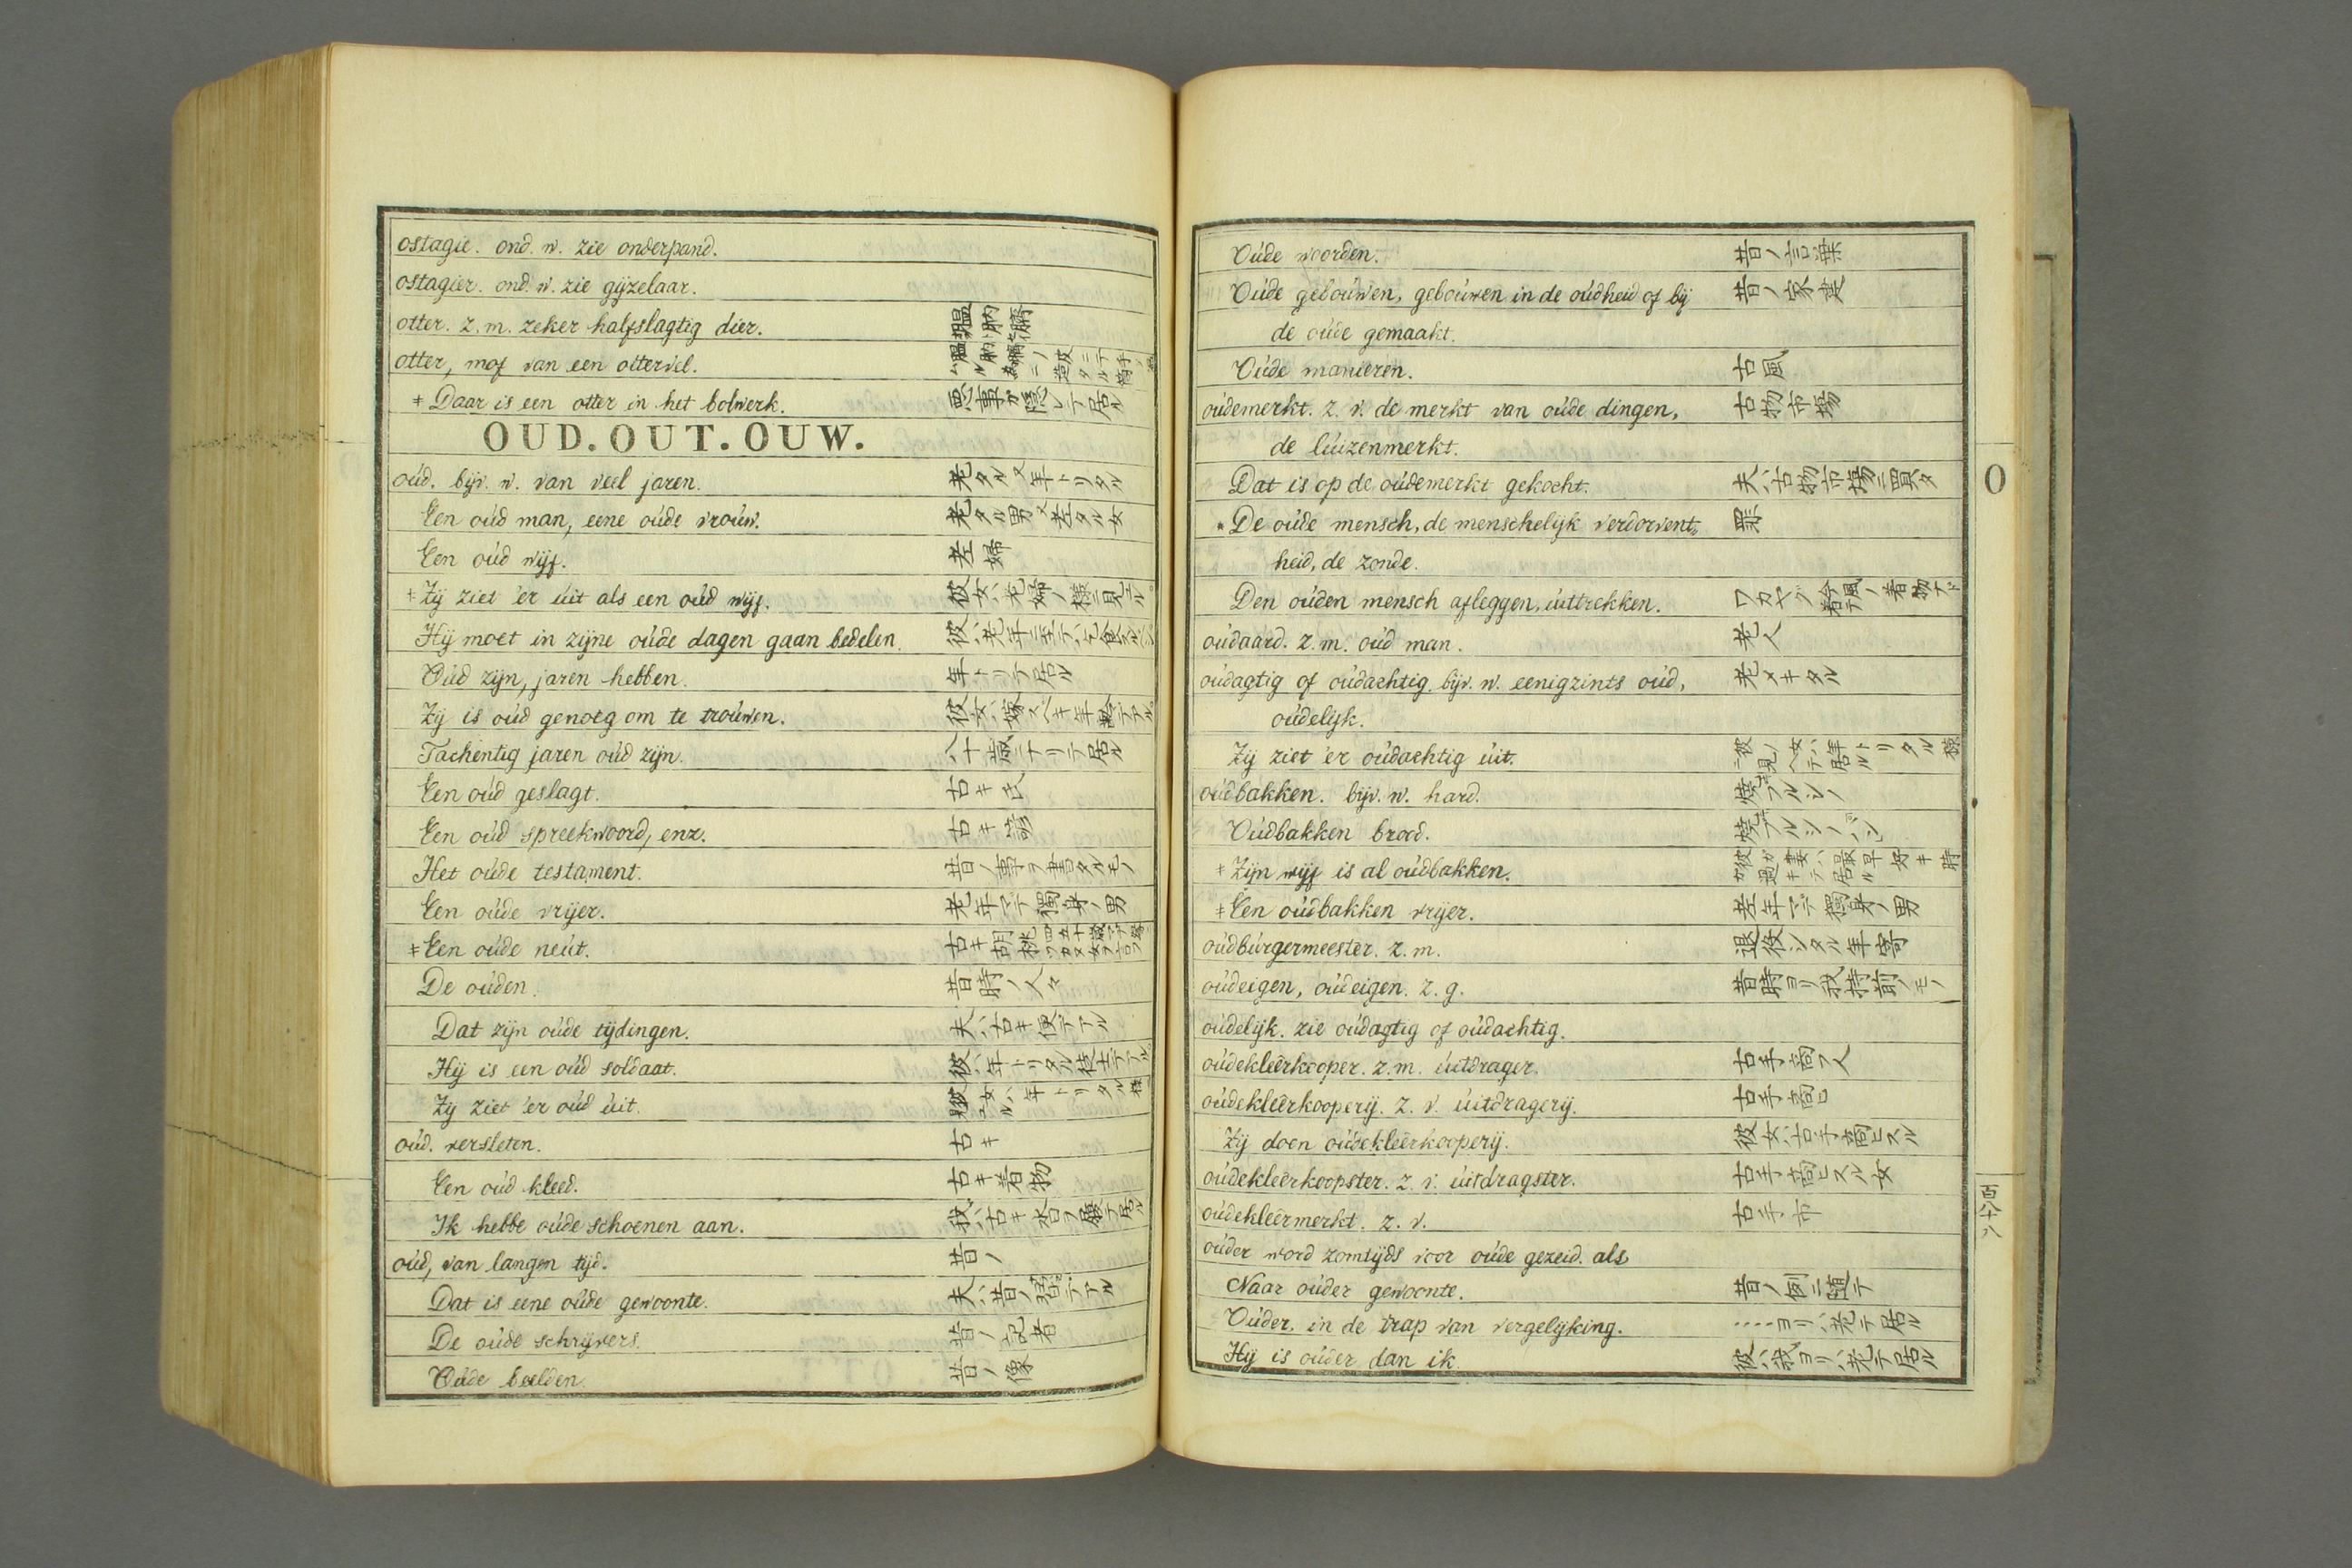 ostagie. ond. w. zie onderpand.
ostagier. ond. w. zie gijzelaar.
otter. z. m. zeker halfslagtig dier. 膃肭臍
otter, mof van een ottervel.
‡ Daar is een otter in het bolwerk. 悪事ガ隠レテ居ル
OUD. OUT. OUW.
oúd. bijv. w. van veel jaren. 老タル又年トリタル
Een oúd man, eene oúde vroúw. 老タル男又老タル女
Een oúd wijf. 老婦
‡ Zij ziet 'er úit als een oúd wijf. 彼女ハ老婦ノ様ニ見ユル
Hij moet in zijne oúde dagen gaan bedelen. 彼ハ老年ニ至テハ乞食
Oúd zijn, jaren hebben. 年トリテ居ル
Zij is oúd genoeg om te troúwen. 彼女ハ嫁スベキ年齢デアル
Tachentig jaren oúd zijn. 八十歳ニナリテ居ル
Een oúd geslagt. 古キ氏
Een oúd spreekwoord, enz. 古キ諺
Het oúde testament. 昔ノ事ヲ書タルモノ
Een oúde vrijer. 老年マデ獨身ノ男
‡ Een oúde neút. 古キ胡桃
De oúden. 昔時ノ人々
Dat zijn oúde tijdingen. 夫ハ古キ便デアル
Hij is een oúd soldaat. 彼ハ年トリタル士デアル
Zij ziet 'er oúd úit. 彼女ハ年トリタル様ニ見ユル
oúd. versleten. 古キ
Een oúd kleed. 古キ着物
Ik hebbe oúde schoenen aan. 我ハ古キ沓ヲ履テ居ル
oúd, van langen tijd. 昔ノ
Dat is eene oúde gewoonte. 夫ハ昔ノ習デアル
De oúde schrijvers. 昔ノ記者
Oúde beelden. 昔ノ像
Oúde woorden. 昔ノ言葉
Oúde geboúwen, geboúwen in de oúdheid of bij 昔ノ家建
de oúde gemaakt.
Oúde manieren. 古風
oúdemerkt. z. v. de merkt van oúde dingen, 古物市場
de lúizenmerkt.
Dat is op de oúdemerkt gekocht. 夫ハ古物市場ニ買タ
* De oúde mensch, de menschelijk verdorvent, 罪
heid, de zonde.
Den oúden mensch afleggen, úittrekken.
oúdaard. z. m. oúd man. 老人
oúdagtig of oúdachtig. bijv. w. eenigzints oúd, 老メキタル
oúdelijk.
Zij ziet 'er oúdachtig úit. 彼女ハ年トリタル様ニ見ヘテ居ル
oúdbakken. bijv. w. hard. 焼フルシノ
Oúdbakken brood. 焼フルシノパン
‡ Zijn wijf is al oúdbakken. 彼ガ妻ハ最早好キ時ガ過キテ居ル
‡ Een oúdbakken vrijer. 老年マデ獨身ノ男
oúdbúrgermeester. z. m. 退役シタル年寄
oúdeigen, oúdeigen. z. g. 昔時ヨリ我持前ノモノ
oúdelijk. zie oúdagtig of oúdachtig.
oúdekleêrkooper. z. m. úitdrager. 古手商フ人
oúdekleêrkooperij. z. v. úitdragerij. 古手商ヒ
Zij doen oúdekleêrkooperij. 彼女ハ古手商ヒスル
oúdekleêrkoopster. z. v. úitdragster. 古手商ヒスル女
oúdekleêrmerkt. z. v. 古手市
oúder word zomtijds voor oúde gezeid. als
Naar oúder gewoonte. 昔ノ例ニ随テ
Oúder, in de trap van vergelijking. ....ヨリハ老テ居ル
Hij is oúder dan ik. 彼ハ我ヨリハ老テ居ル
O
百八十八